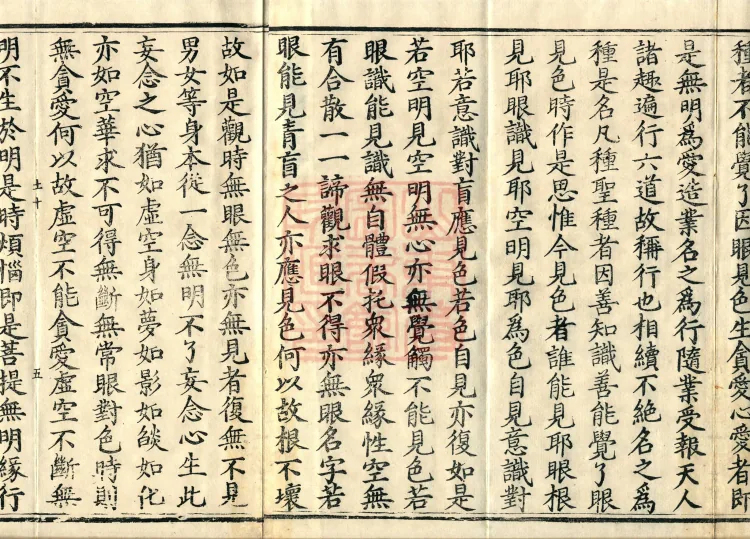 種者不能覺了因眼見色生貪愛心愛者即
是無明爲愛造業名之爲行隨業受報天人
諸趣遍行六道故稱行也相續不絕名之爲
種是名凡種聖種者因善知識善能覺了眼
見色時作是思惟今見色者誰能見耶眼根
見耶眼識見耶空明見耶為色自見意識對
耶若意識對盲應見色若色自見亦復如是
若空明見空明無心亦無覺觸不能見色若
眼識能見識無自體假托衆緣衆緣性空無
有合散一一諦觀求眼不得亦無眼名字若
眼能見青盲之人亦應見色何以故根不壞
故如是觀時無眼無色亦無見者復無不見
男女等身本從一念無明不了妄念心生此
妄念之心猶如虛空身如夢如影如燄如化
亦如空華求不可得無斷無常眼對色時則
無貪愛何以故虛空不能貪愛虛空不斷無
土十 五
明不生於明是時煩惱即是菩提無明緣行